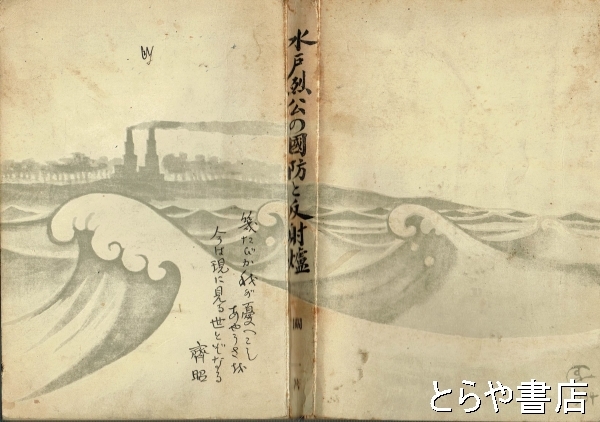 水戸烈公の國防と反射爐
關
幾たびか我が憂へこし
あやうきを
今は現に見る世とぞなる
齊昭
とらや書店